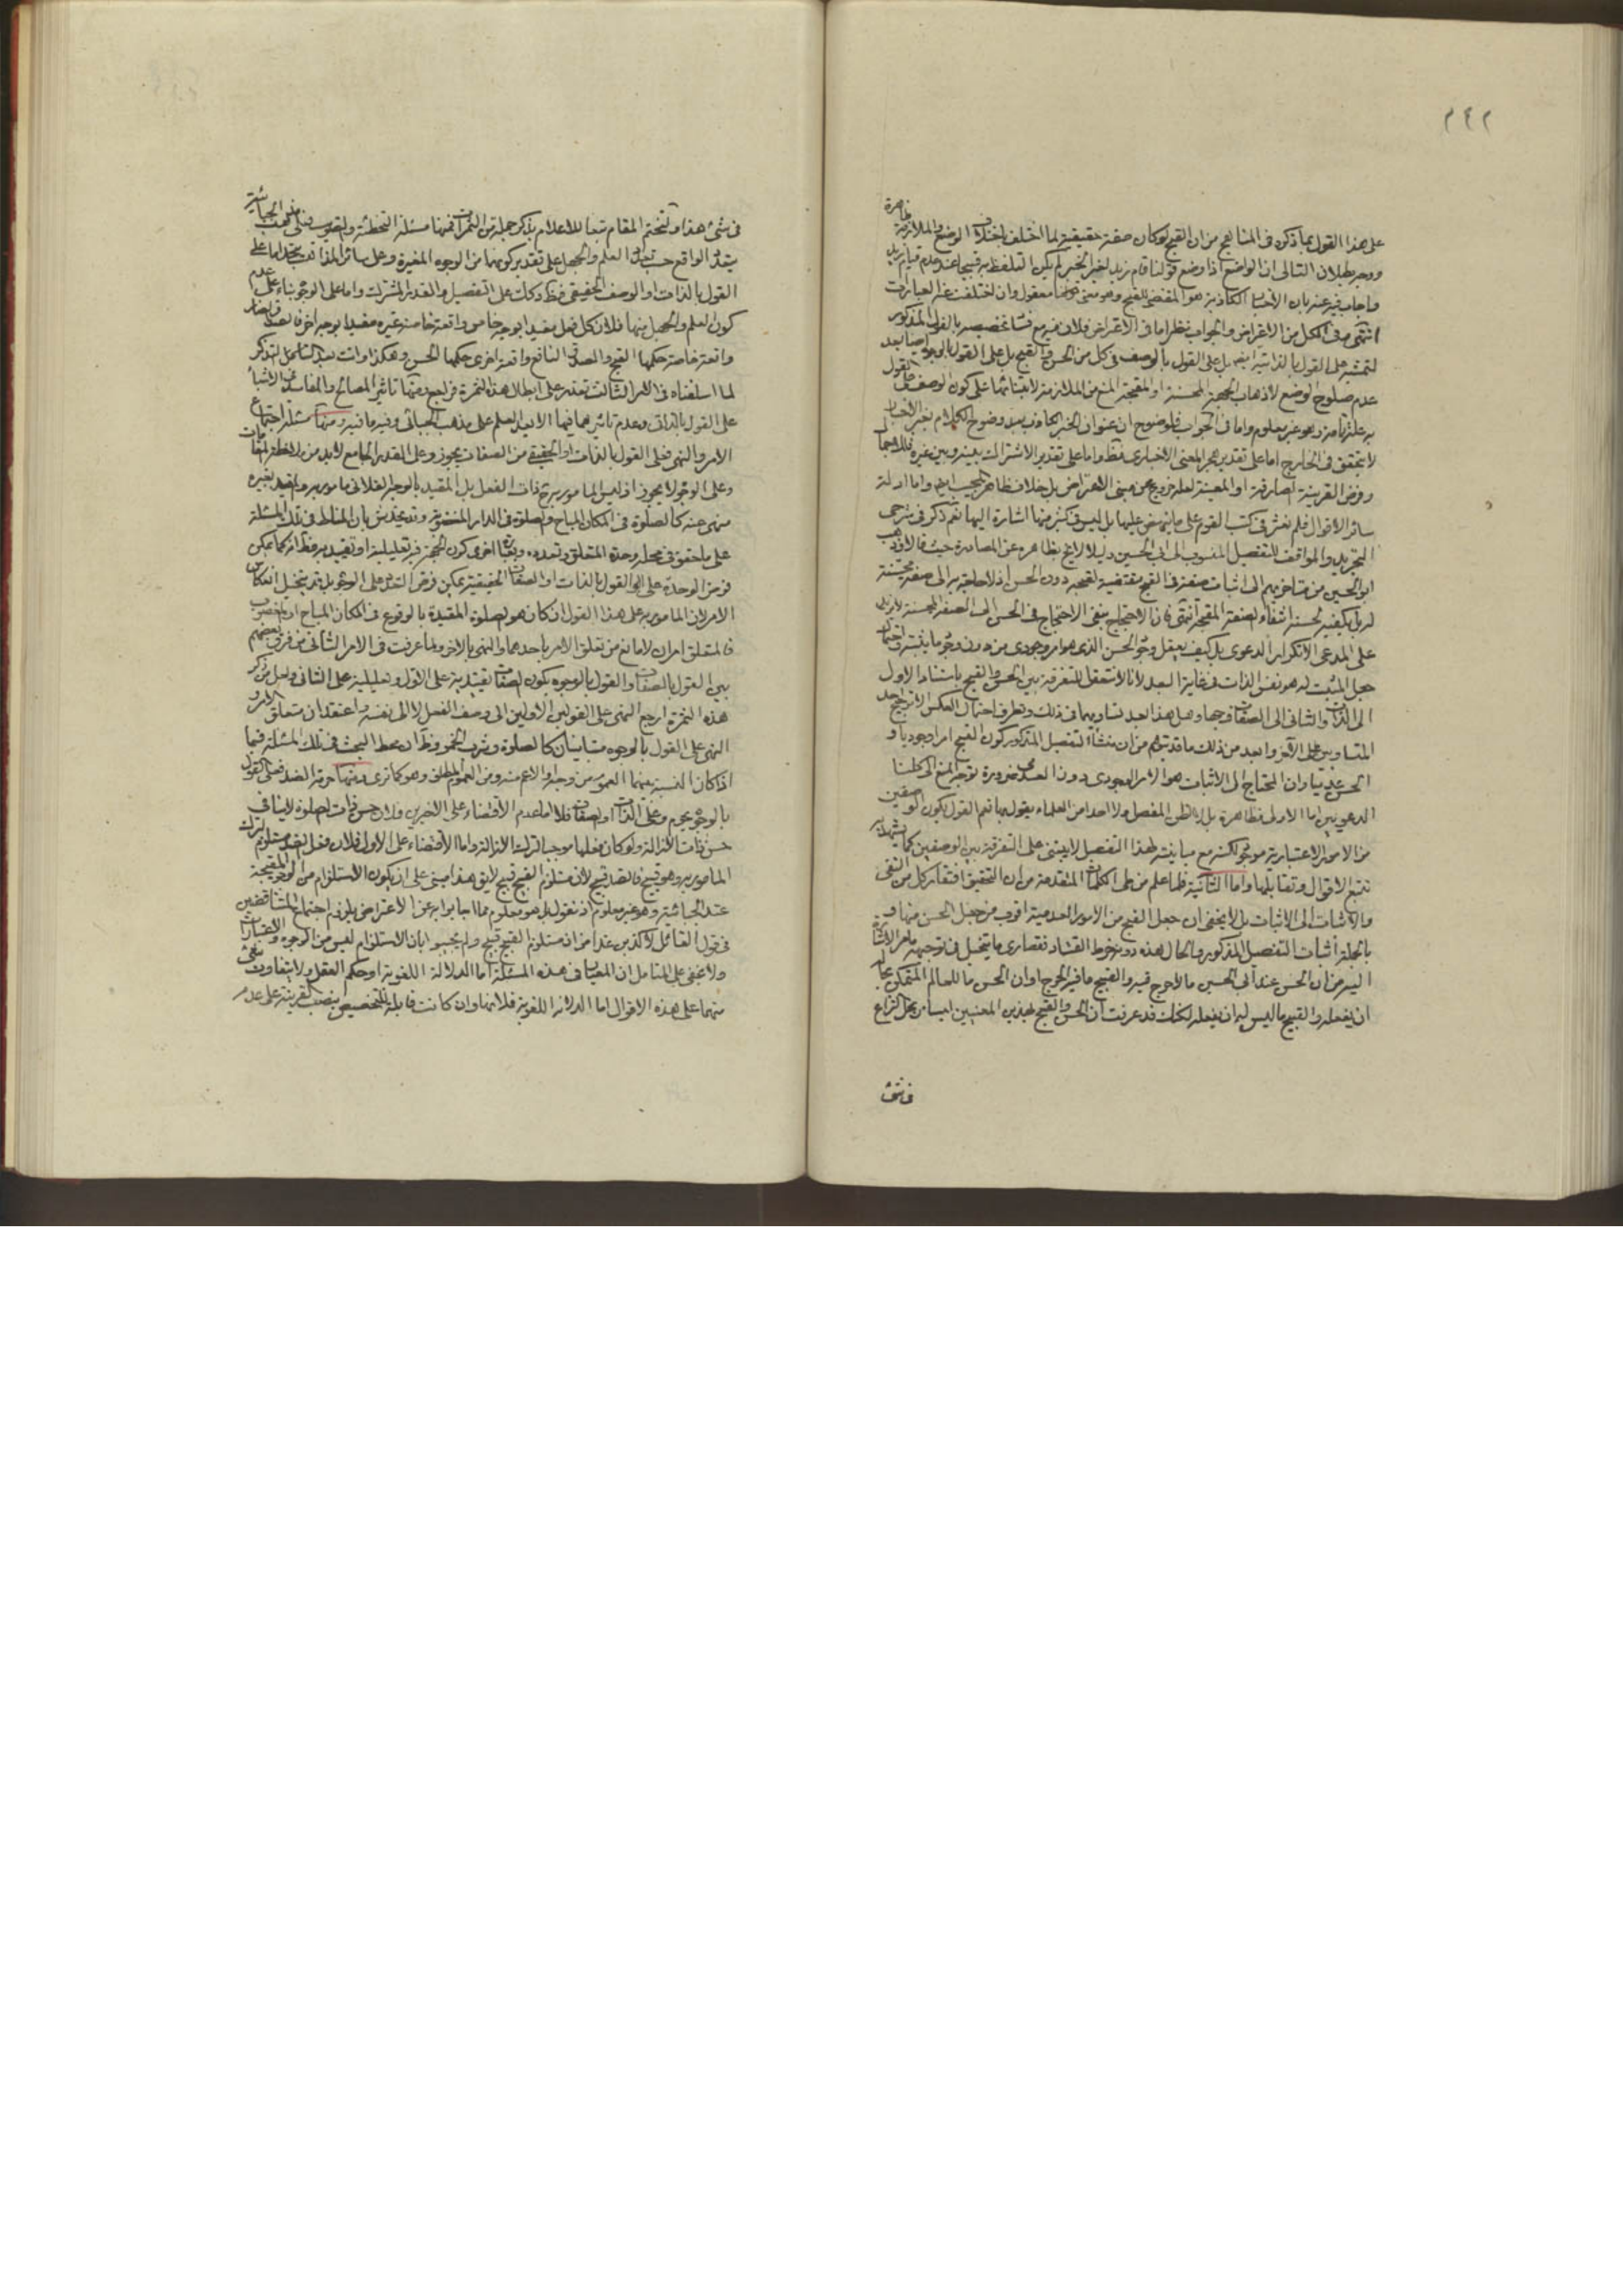 ٢٤٢
على هذا القول بما ذكره فى المناهج من ان القبح لو كان صفة حقيقية لما اختلف باختلاف الوضع والملازمة ظاهرة
ووجه بطلان التالى ان الواضع اذا وضع قولنا قام زيد لغير الخبر لم يكن التلفظ به قبيحا عند عدم قيام زيد
واجاب فيه عنه بان الكاذبة هو المقتضى للقبح وهو معنى معقول وان اختلفت عنه العبارات
انتهى وفى الكل من الاعتراض والجواب نظر اما فى الاعتراض فلان فيه مع تخصيصه بالقول المذكور
لتمشيه على القول بالذاتية ايضا بل على القول بالوصف فى كل من الحسن والقبح بل على القول بالوجوه ايضا بعد
عدم صلوح الوضع لاذهاب الجهة المحسنة او المقبحة المنع من الملازمة لابتنائها على كون الوصف
به علة تامة وهو غير معلوم واما فى الجواب فلوضوح ان عنوان الخبر الكاذب بعد وضوح الكلام بغير الاخبار
لا يتحقق فى الخارج اما على تقدير هجر المعنى الاخبارى فظ واما على تقدير الاشتراك بينه وبين غيره
وفرض القرينة الصارفة او المعينة لعله خروج عن مبنى الاعتراض بل خلاف ظاهر المجيب ايضا واما ادلة
سائر الاقوال فلم نعثر فى كتب القوم على ما ينهض عليها بل ليس فى كثير منها اشارة اليها نعم ذكر فى شرحى
التجريد والمواقف للتفصيل المنسوب الى ابى الحسين دليلا حيث قالا وذهب
ابو الحسين من متاخريهم الى اثبات صفة فى القبيح مقتضية لقبحه دون الحسن اذ لا حاجة به الى صفة محسنة
له بل يكفيه لحسنه انتفاء الصفة المقبحة انتهى فان الاحتجاج بنفى الاحتياج فى الحسن الى الصفة المحسنة
على المدعى الا تكرار الدعوى بل كيف يعقل الحسن الذى هو امر وجودى من دون
جعل المثبت له هو نفس الذات فى غاية البعد لانا لا نتعقل للتفرقة بين الحسن والقبح باستناد الاول
الى الذات والثانى الى الصفات وجها وهل هذا الا بعد تساويهما فى ذلك وتطرق احتمال العكس الا ترجيح احد
المتساويين على الآخر وابعد من ذلك ما قد يتوهم من ان منشأ التفصيل المذكور كون القبح امرا وجوديا و
الحسن عدميا وان المحتاج الى الاثبات هو الامر الوجودى دون العدمى ضرورة توجه المنع الى كلتا
الدعويين اما الاولى فظاهرة
من الامور الاعتبارية مع مباينته لهذا التفصيل لا يبتنى على التفرقة بين الوصفين كما يشهد به
تتبع الاقوال وتقابلها واما الثانية فلما علم من المتقدمة من ان التحقيق افتقار كل من النفى
والاثبات الى الاثبات بل لا يخفى ان جعل القبح من الامور العدمية اقرب من جعل الحسن منها و
بالجملة اثبات التفصيل المذكور والحال هذه دونه خرط القتاد فقصارى ما يتخيل فى توجيهه ما مر الاشارة
اليه من ان الحسن عند ابى الحسين ما لا حرج فيه والقبيح ما فيه الحرج او ان الحسن ما للعالم المتمكن
ان يفعله والقبيح ما ليس له ان يفعله لكنك قد عرفت ان الحسن والقبح بهذين المعنيين ليسا من محل النزاع
فى شئ
فى شئ هذا ولنختم المقام تبعا للاعلام بذكر جملة من الثمرات فمنها مسئلة التخطئة والتصويب فعلى مذهب الجبائية
يتعدد الواقع حسب تعدد العلم والجهل على تقدير كونهما من الوجوه المغيرة وعلى سائر المذاهب
القول بالذات او الوصف الحقيقى فظ وكذلك على التفصيل والقدر المشترك واما على الوجوه بناء على عدم
كون العلم والجهل منها فلان كل فعل مقيد بوجه خاص واقعة خاصة غيره مقيدا بوجه آخر
واقعة خاصة حكمها القبح والصدق النافع واقعة اخرى حكمها الحسن وهكذا وانت بعد التأمل التذكر
لما اسلفناه فى الامر الثالث تقدر على ابطال هذه الثمرة فراجع ومنها تاثير المصالح والمفاسد فى الاشياء
على القول بالذاتى وعدم تاثيرهما فيها الا بعد العلم على مذهب الجبائى وفيه ما فيه ومنها مسئلة اجتماع
الامر والنهى فعلى القول بالذات او الحقيقية من الصفات يجوز وعلى القدر الجامع لا بد من
وعلى الوجوه لا يجوز اذ ليس المامور به ح ذات الفعل بل المقيد بالوجه الفلانى مامور به والمقيد بغيره
منهى عنه كالصلوة فى المكان المباح والصلوة فى الدار المغصوبة وقد يخدش بان المناط فى تلك المسئلة
على ما حقق فى محله وحدة المتعلق وتعدده
فرض الوحدة على القول بالذات او الصفات الحقيقية يمكن فرض التعدد على الوجوه بل قد يتخيل انعكاس
الامر لان المامور به على هذا القول ان كان هو الصلوة المقيدة بالوقوع فى المكان المباح او المغصوب
فالمتعلق امران لا مانع من تعلق الامر باحدهما والنهى بالآخر ولما عرفت فى الامر الثانى من فرق بعضهم
بين القول بالصفات والقول بالوجوه بكون الصفات تقييدية على الاول وتعليلية على الثانى ولعل من ذكر
هذه الثمرة ارجع النهى على القولين الاولين الى وصف الفعل لا الى نفسه واعتقد ان متعلق الامر و
النهى على القول بالوجوه متباينان كالصلوة وشرب الخمر وظ ان محط البحث فى تلك المسئلة فيما
اذا كان النسبة بينهما العموم من وجه او الاعم منه ومن العموم المطلق وهو كما ترى ومنها حرمة الضد فعلى القول
بالوجوه يحرم وعلى الذات او الصفات فلا اما عدم الاقتضاء على الاخيرين فلان حسن ذات الصلوة لا ينافى
حسن ذات الازالة ولو كان فعلها موجبا لترك الازالة واما الاقتضاء على الاول فلان فعل الضد مستلزم لترك
المامور به وهو قبيح فالضد قبيح لان مستلزم القبيح قبيح لا يق هذا مبنى على ان يكون الاستلزام من الوجوه المقبحة
عند الجبائية وهو غير معلوم اذ نقول بل هو معلوم مما اجابوا به عن الاعتراض بلزوم اجتماع المتناقضين
فى قول القائل لاكذبن غدا من ان مستلزم القبيح قبيح ولم يجيبوا بان الاستلزام ليس من الوجوه والاعتبارات
ولا يخفى على المتامل ان المعيار فى هذه المسئلة اما الدلالة اللفظية او حكم العقل ولا يتفاوت شئ
منهما على هذه الاقوال اما الدلالة اللفظية فلانها وان كانت قابلة للتخصيص بنصب القرينة على عدم